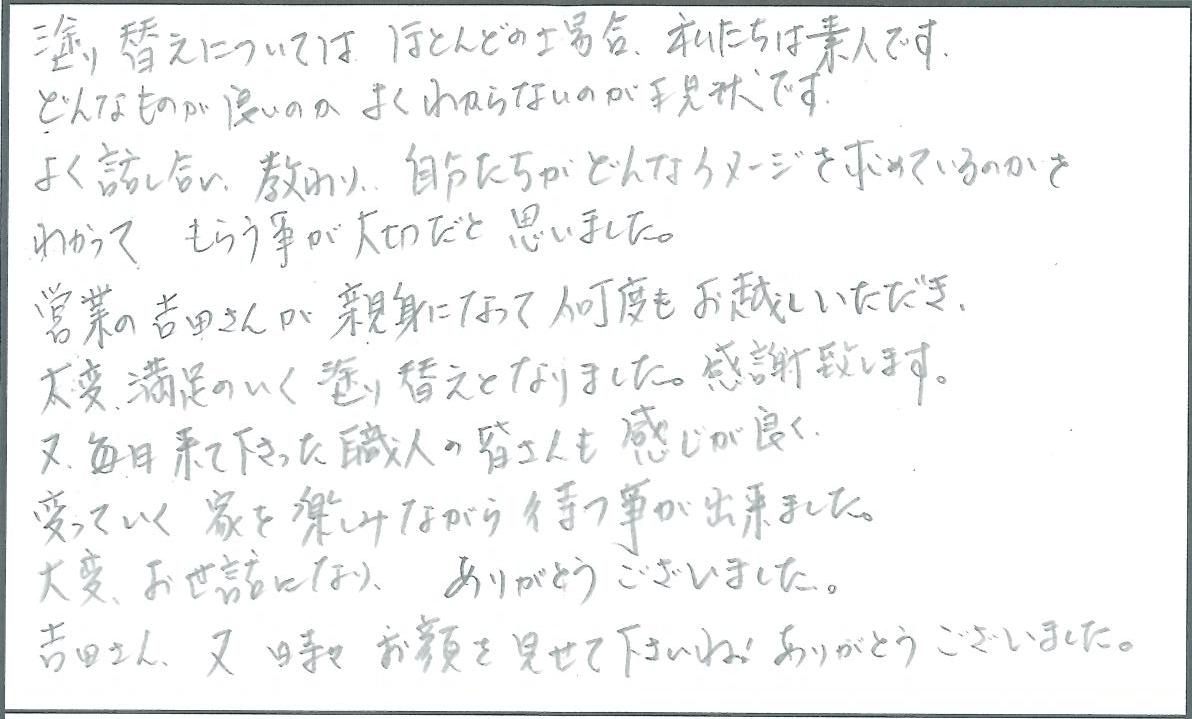 塗り替えについては ほとんどの場合、私たちは素人です.
どんなものが良いのか よくわからないのが現状です.
よく話し合い、教わり、自分たちがどんなイメージを求めているのかを
わかって もらう事が大切だと 思いました。
営業の吉田さんが 親身になって何度も お越しいただき、
大変、満足のいく 塗り替えとなりました。感謝致します。
又、毎日来て下さった職人の皆さんも 感じが良く、
変っていく 家を楽しみながら 待つ事が出来ました。
大変、お世話になり、 ありがとう ございました。
吉田さん、又 時々 お顔を見せて下さいね! ありがとう ございました。